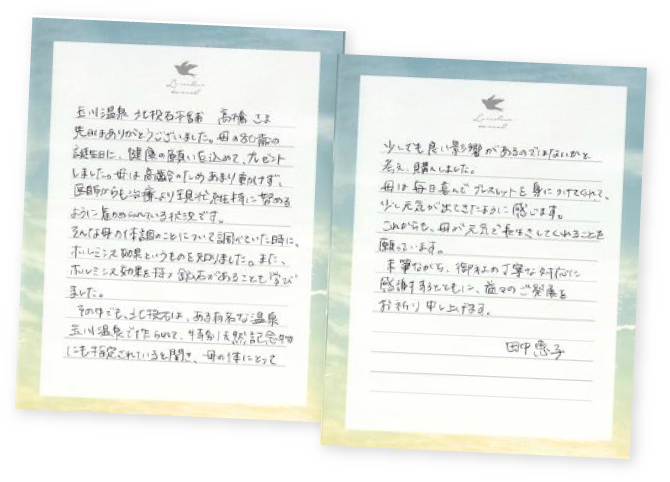 玉川温泉 北投石子宝舗 高橋さま
先日はありがとうございました。母の80歳の
誕生日に、健康の願いを込めて、プレゼント
しました。母は高齢のためあまり動けず、
医師からも治療より現状維持に努める
ように進められている状況です。
そんな母の体調のことについて調べていた時に、
ホルミシス効果というものを知りました。また、
ホルミシス効果を持つ鉱石があることも学び
ました。
その中でも、北投石は、ある有名な温泉
玉川温泉で作られて、特別天然記念物
にも指定されていると聞き、母の体にとって
少しでも良い影響があるのではないかと
考え、購入しました。
母は毎日喜んでブレスレットを身につけてくれて、
少し元気が出てきたように感じます。
これからも、母が元気で長生きしてくれることを
願っています。
末筆ながら、御社の丁寧な対応に
感謝するとともに、益々のご発展を
お祈り申し上げます。
田中恵子